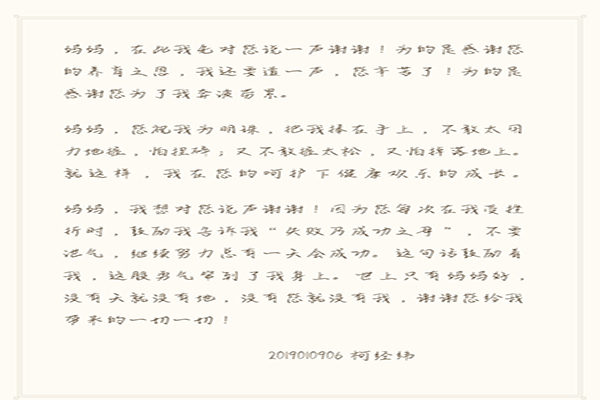 妈妈，在此我先对您说一声谢谢！为的是感谢您
的养育之恩，我还要道一声，您辛苦了！为的是
感谢您为了我奔波劳累。
妈妈，您视我为明珠，把我捧在手上，不敢太用
力地握，怕捏碎；又不敢握太松，又怕掉落地上。
就这样，我在您的呵护下健康欢乐的成长。
妈妈，我想对您说声谢谢！因为您每次在我受挫
折时，鼓励我告诉我“失败乃成功之母”，不要
泄气，继续努力总有一天会成功。这句话鼓励着
我，这股勇气窜到了我身上。世上只有妈妈好，
没有天就没有地，没有您就没有我，谢谢您给我
带来的一切一切！
2019010906 柯经纬